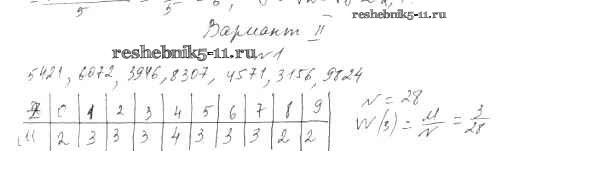 5
5
reshebnik5-11.ru
Вариант II
reshebnik5-11.ru
№1
5421, 6072, 3946, 8307, 4571, 3156, 9824
X 0 1 2 3 4 5 6 7 8 9
M 2 3 3 3 4 3 3 3 2 2
N = 28
W(3) = M/N = 3/28